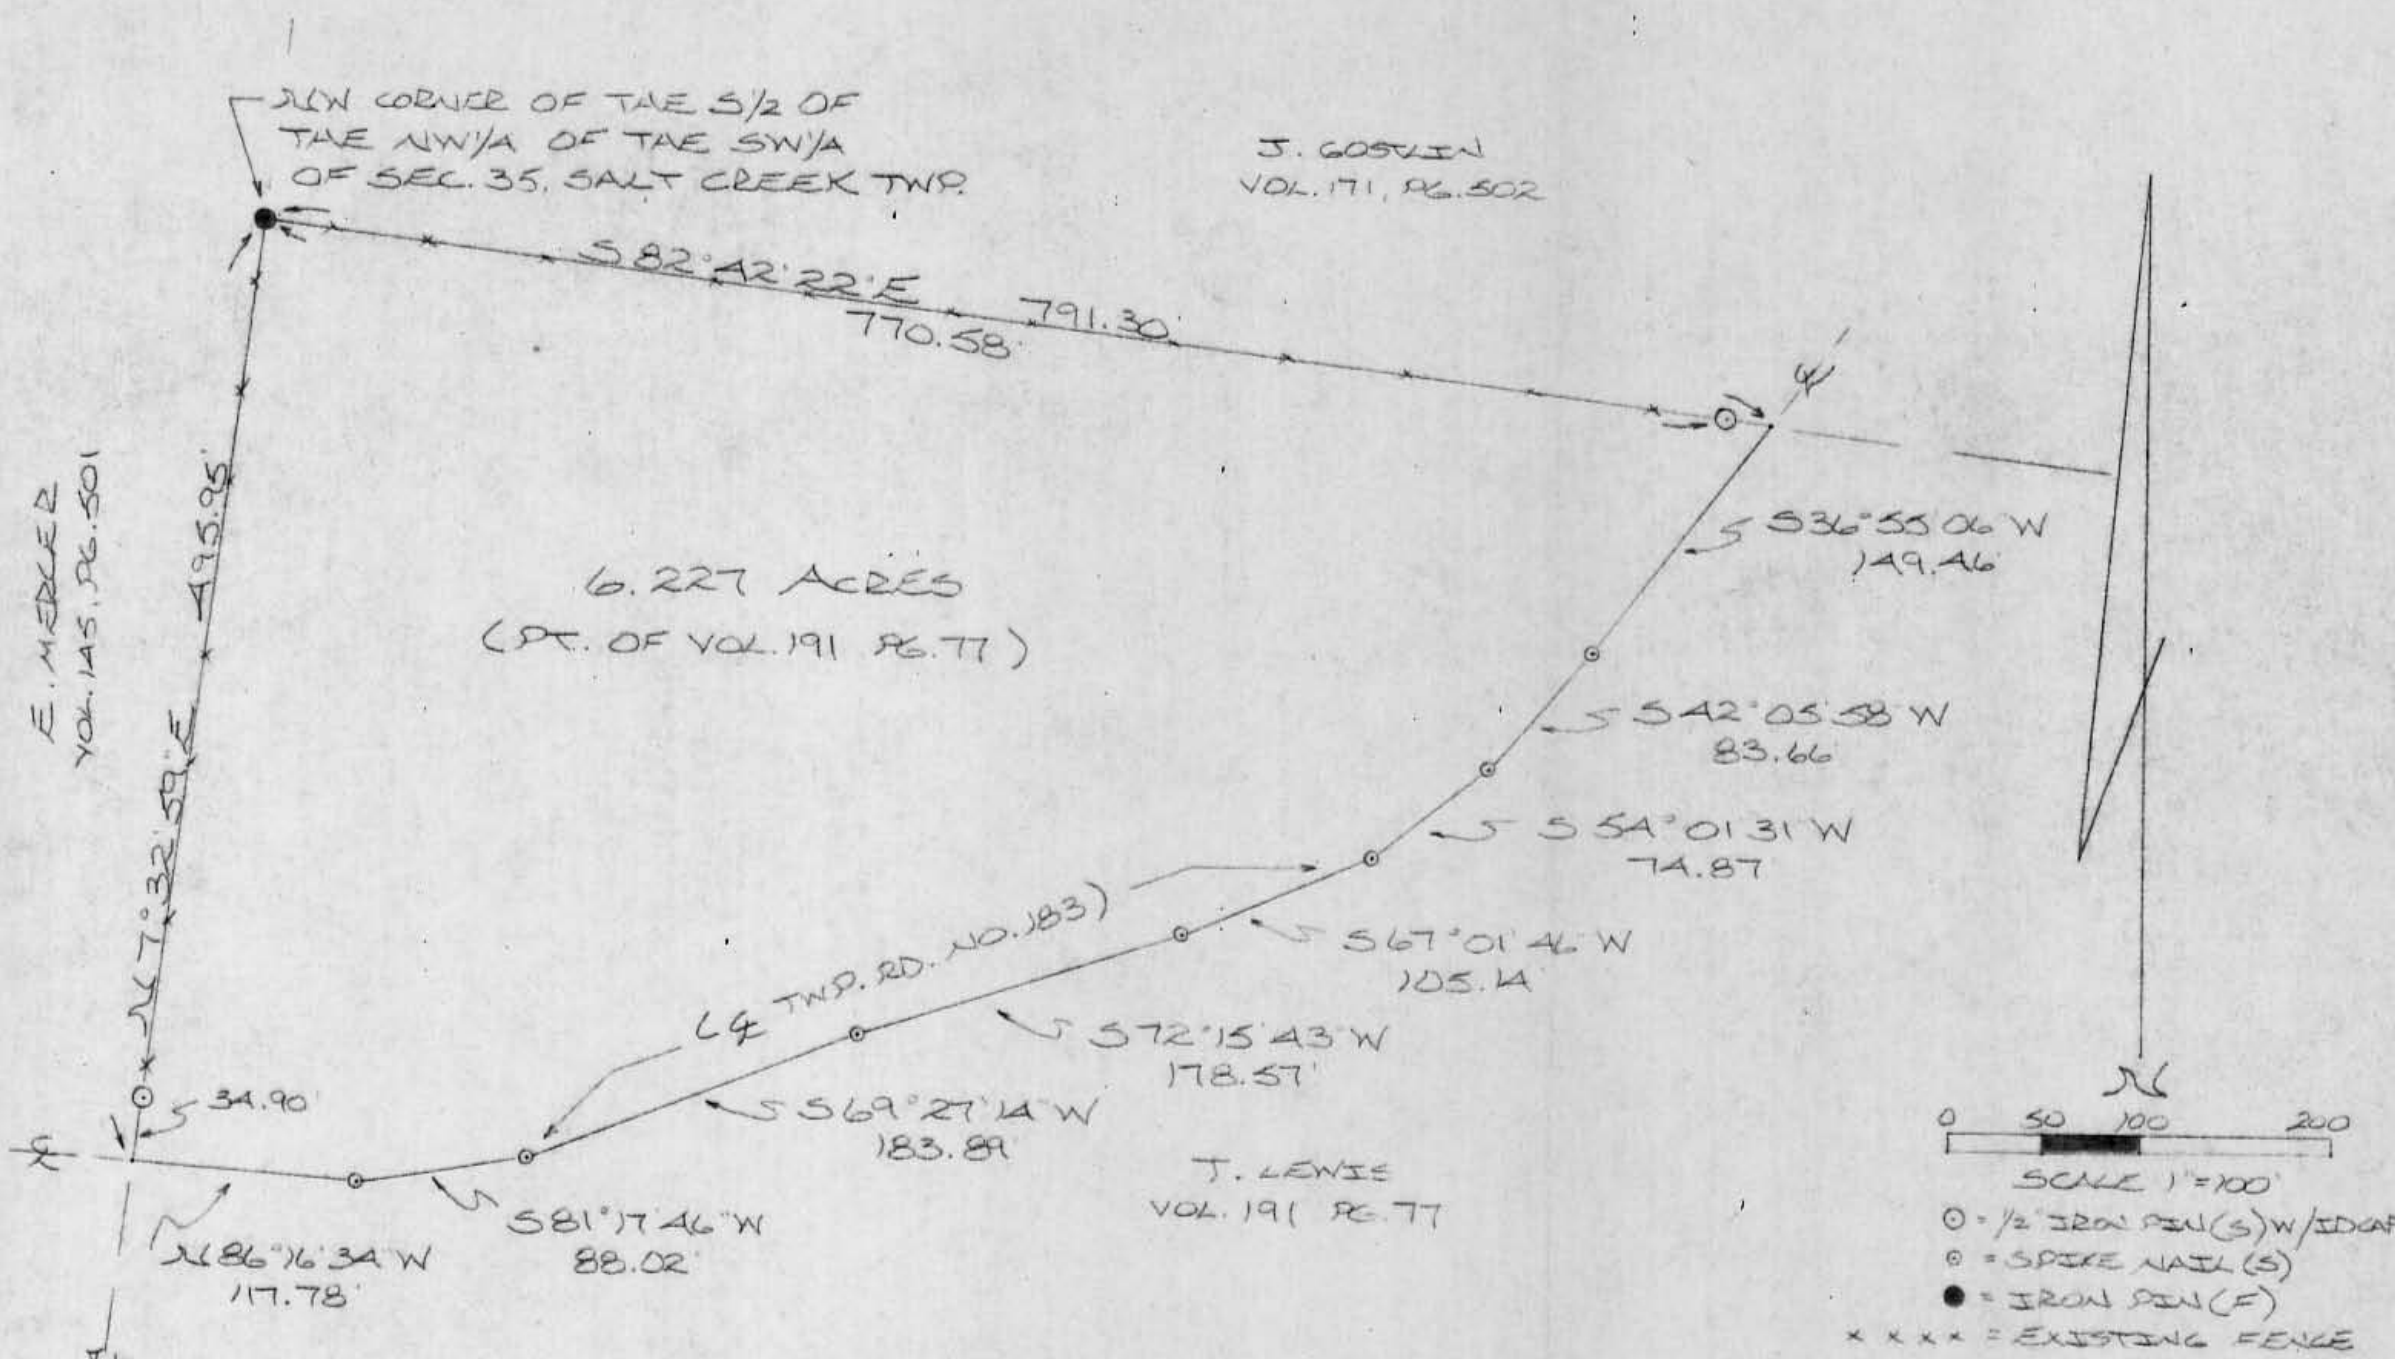 NW CORNER OF THE S1/2 OF
THE NW1/4 OF THE SW1/4
OF SEC. 35, SALT CREEK TWP.
J. GOSLIN
VOL. 171, PG. 502
S 82° 42' 22" E
791.30'
770.58'
℄
E. MERCLER
VOL. 145, PG. 501
N 7° 32' 59" E 495.95'
6.227 ACRES
(PT. OF VOL. 191 PG. 77)
S 36° 55' 06" W
149.46'
S 42° 05' 58" W
83.66'
S 54° 01' 31" W
74.87'
S 67° 01' 46" W
105.14'
(℄ TWP. RD. NO. 183)
S 72° 15' 43" W
178.57'
S 69° 27' 14" W
183.89'
34.90'
℄
S 81° 17' 46" W
88.02'
N 86° 16' 34" W
117.78'
T. LEWIS
VOL. 191 PG. 77
N
0 50 100 200
SCALE 1"=100'
⊙ = 1/2" IRON PIN(S) W/IDCAP
⊙ = SPIKE NAIL(S)
● = IRON PIN(F)
x x x x = EXISTING FENCE